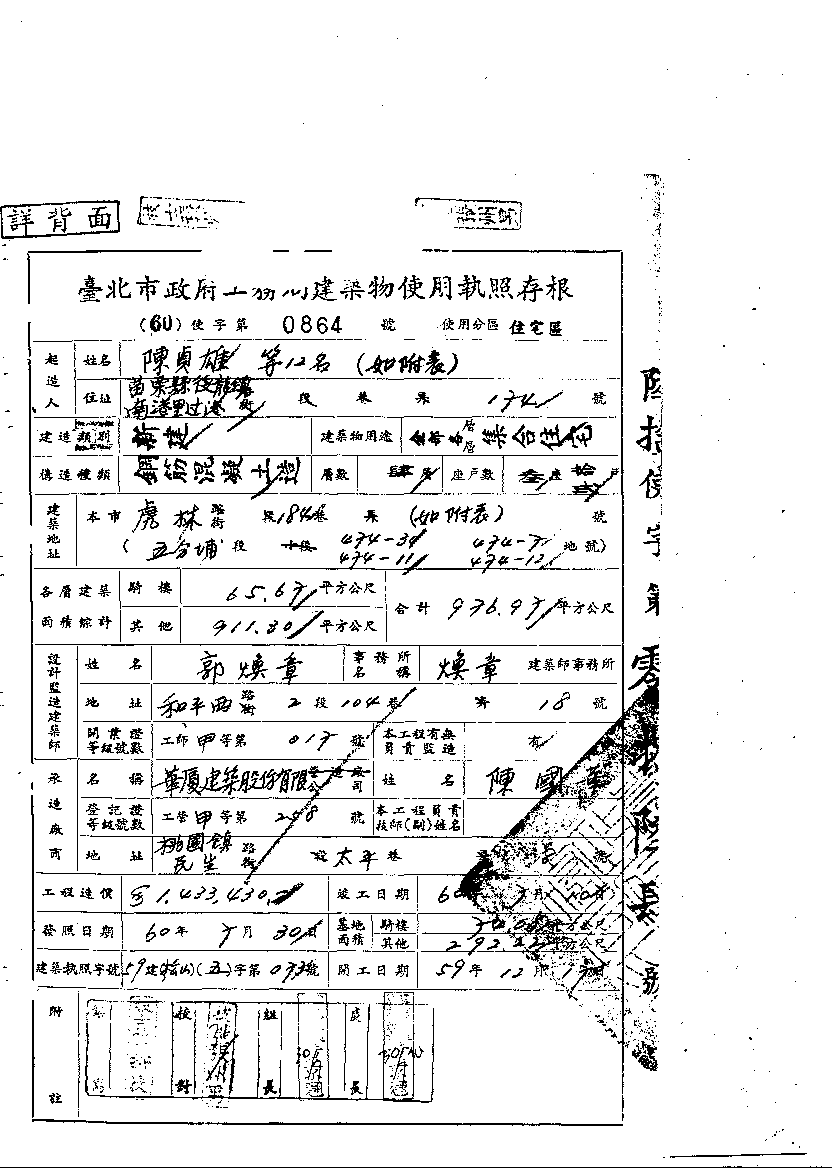 詳背面
臺北市政府工務局建築物使用執照存根
(60)使字第 0864 號 使用分區 住宅區
起造人 姓名 陳貞雄 等12名 (如附表)
住址 苗栗縣後龍鎮 南港里过港 街 段 巷 弄 174 號
建造類別 新建 建築物用途 全部各層 集合住宅
構造種類 鋼筋混凝土造 層數 肆層 座戶數 叁座拾貳戶
建築地址 本市 虎林 路街 段184巷 弄 (如附表) 號
(五分埔 段 小段 474-3 474-7 474-11 474-12 地號)
各層建築面積綜計 騎樓 65.67 平方公尺 合計 976.97 平方公尺
其他 911.30 平方公尺
設計監造建築師 姓名 郭煥章 事務所名稱 煥章 建築師事務所
地址 和平西 路街 2段104巷 弄 18 號
開業證等級號數 工師 甲 等第 017 號 本工程有無負責監造 有
承造廠商 名稱 華廈建築股份有限公司 姓名 陳國
登記證等級號數 工營 甲 等第 258 號 本工程負責技師(副)姓名
地址 桃園鎮民生 路街 段 太平 巷 號
工程造價 1,433,430 竣工日期 60年 月 10日
發照日期 60年 7月 30日 基地面積 騎樓 平方公尺
其他 292 平方公尺
建築執照字號 59建(松山)(五)字第 073號 開工日期 59年 12月 日
附註 校對 組長 長
陸拾使字第零捌陸肆號